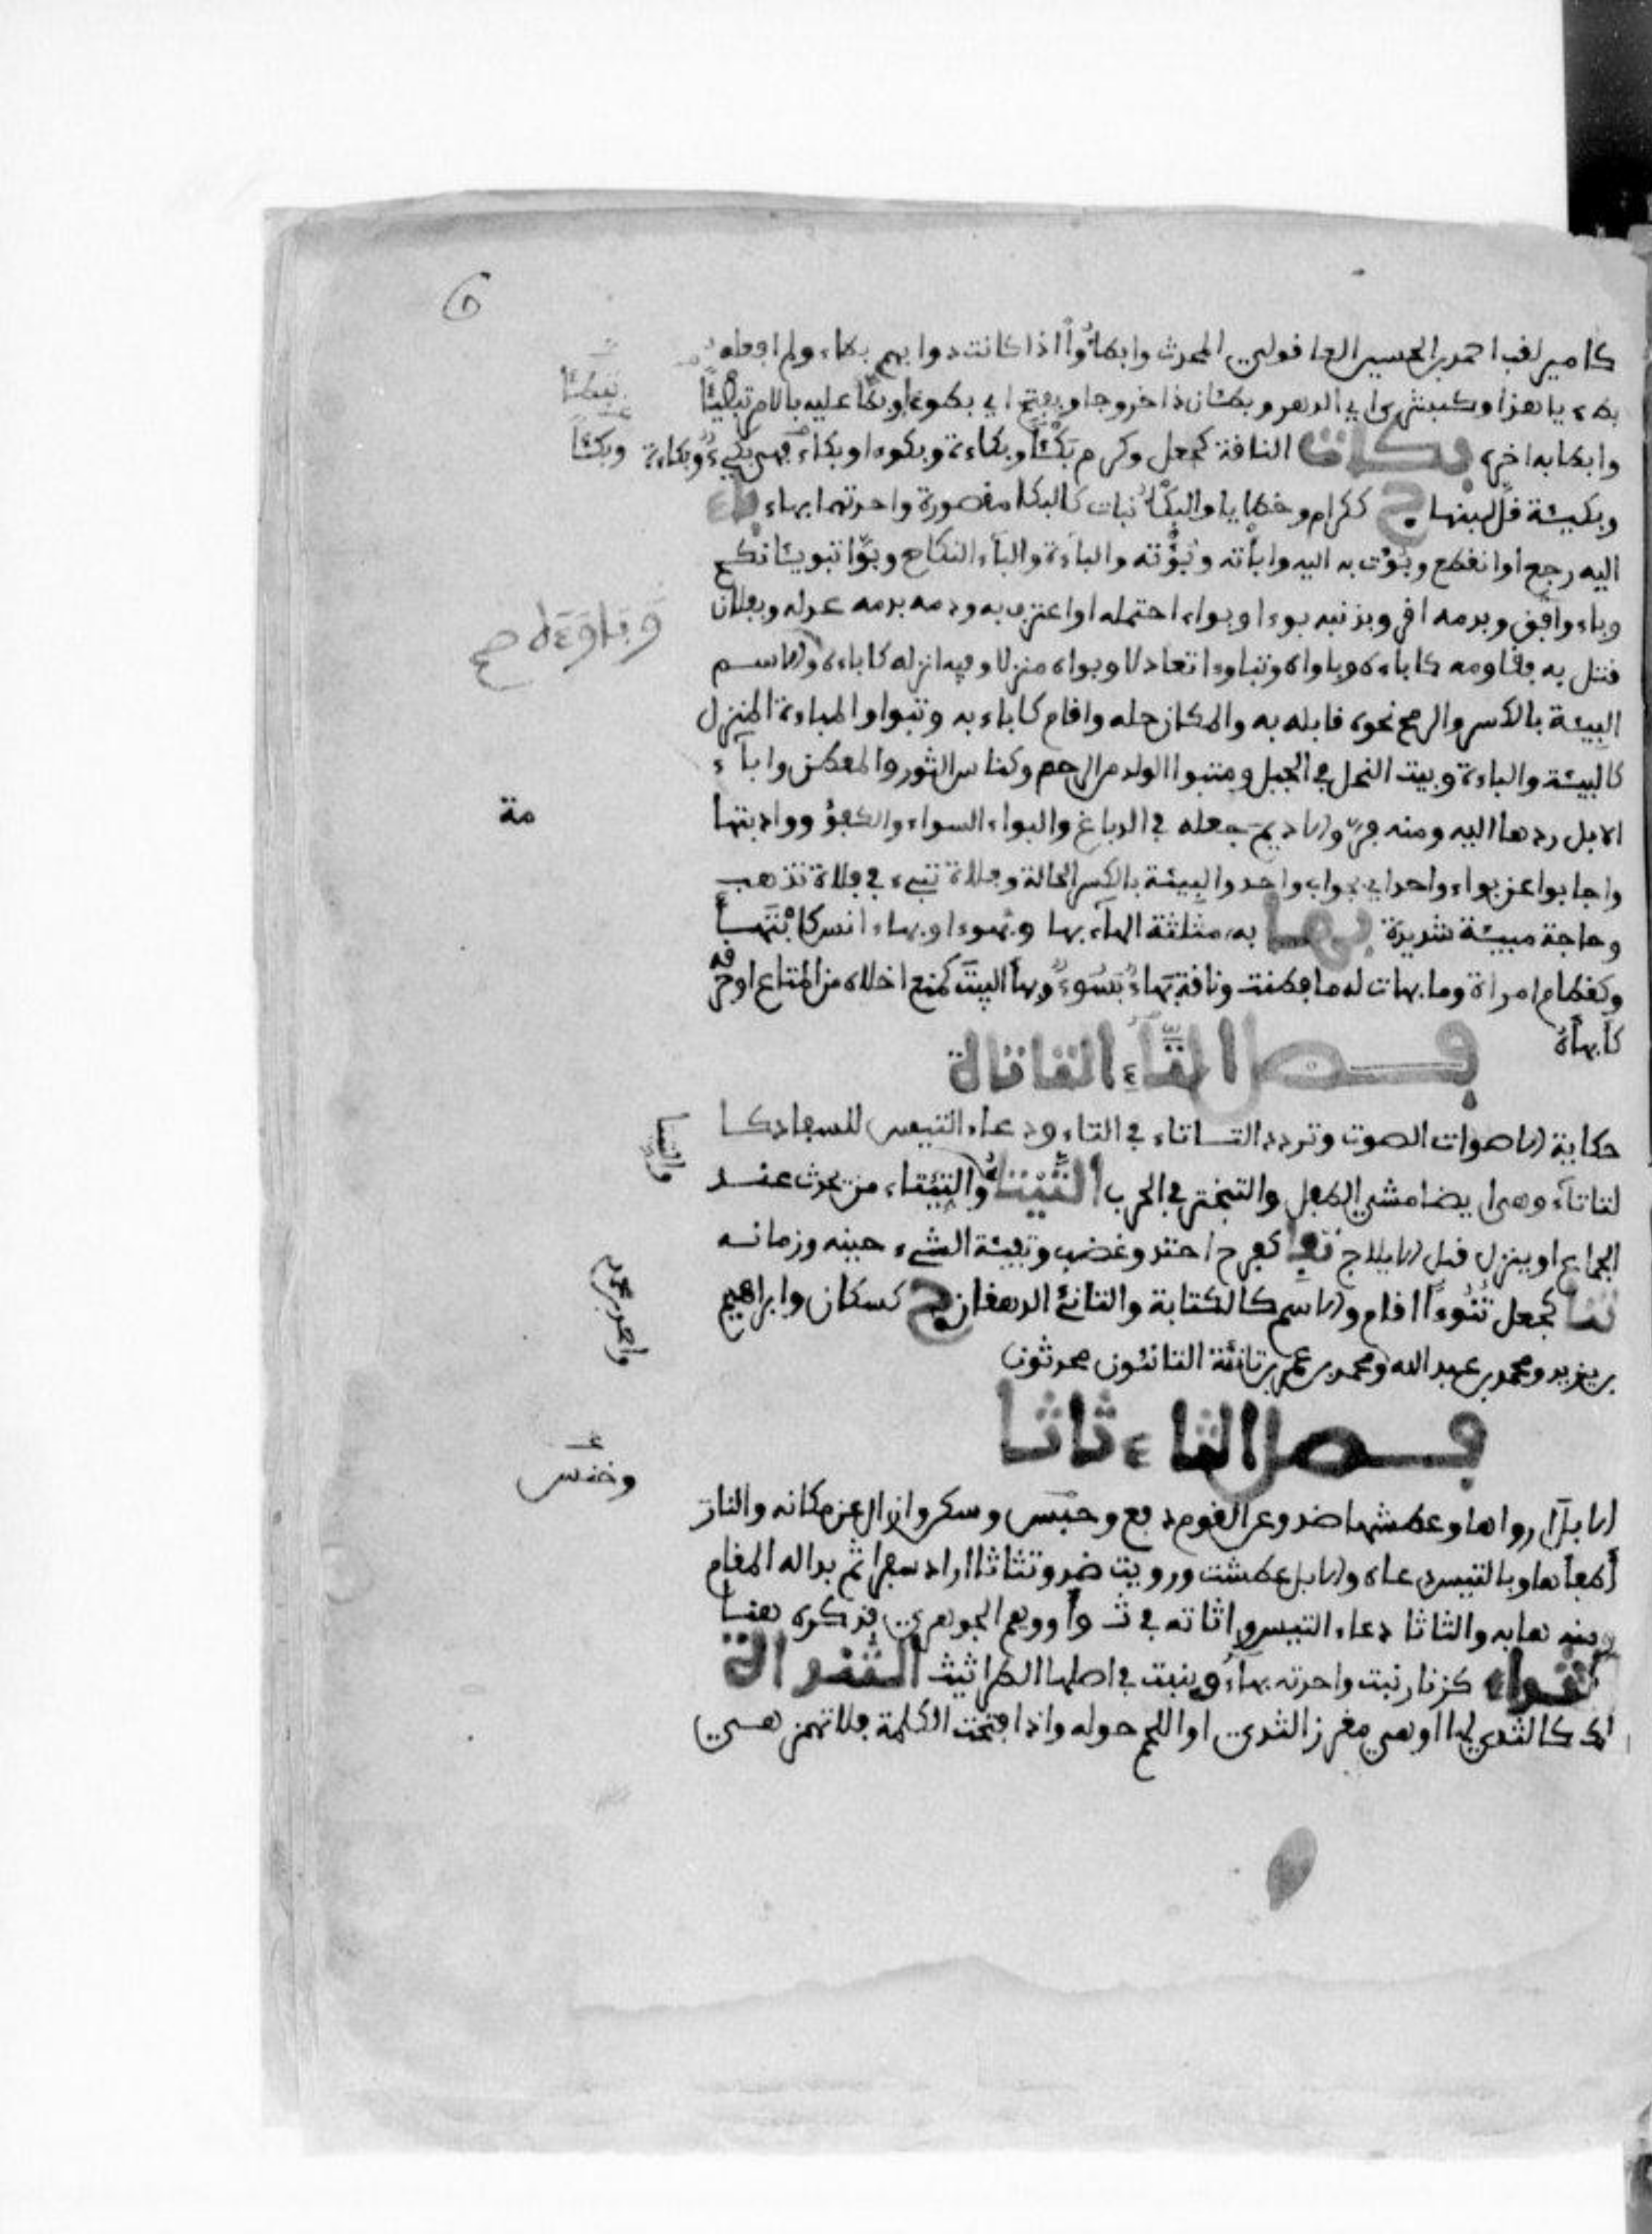 كامير لقب احمد بن الحسين العاقولي المحدث وابطأوا اذا كانت دوابهم بطاء ولم افعله
بطء يا هذا وكبشرى اي الدهر وبطئان ذا خروجا ويفتح اي بطوء وبطأ عليه بالامر تبطيئا
وابطا به اخره بكات الناقة كجعل وكرم بكئا وبكاءة وبكوءا وبكاء فهي بكيء وبكاءة وبكئا
وبكيئة قل لبنها ج ككرام وخطايا والبكأ نبات كالبكا مقصورة واحدتهما بهاء باء
اليه رجع او انقطع وبؤت به اليه وابأته وبؤته والباءة والباء النكاح وبوا تبويئا نكح
وباء وافق وبدمه اقر وبذنبه بوءا وبواء احتمله او اعترف به ودمه بدمه عدله وبفلان
قتل به فقاومه كاباءه وباواه وتباوءا تعادلا وبواه منزلا وفيه انزله كاباءه والاسم
البيئة بالكسر والرمح نحوه قابله به والمكان حله واقام كاباء به وتبوا والمباءة المنزل
كالبيئة والباءة وبيت النحل في الجبل ومتبوا الولد من الرحم وكناس الثور والمعطن واباء
الابل ردها اليه ومنه فر والاديم جعله في الدباغ والبواء السواء والكفؤ وواد بتهامة
واجابوا عن بواء واحد اي بجواب واحد والبيئة بالكسر الحالة وفلاة تبيء في فلاة تذهب
وحاجة مبيئة شديدة بها به مثلثة الهاء بها وبهوءا وبهاء انس كابتهأ
وكقطام امراة وما بهات له ما فطنت وناقة بهاء بسوء وبها البيت كمنع اخلاه من المتاع او خرقه
كابهأه
فصل التاء التاتاة
حكاية الاصوات الصوت وتردد التاتاء في التاء ودعاء التيس للسفاد كا
لتاتاء وهي ايضا مشي الطفل والتبختر في الحرب التيتاء والتئتاء من يحدث عند
والتيتا
الجماع او ينزل قبل الايلاج تفئ كفرح احتد وغضب وتفيئة الشيء حينه وزمانه
تنا كجعل تنوءا اقام والاسم كالكتابة والتانئ الدهقان ج كسكان وابراهيم
بن يزيد ومحمد بن عبد الله ومحمد بن عمر بن تانئة التانئون محدثون
واحمد بن محمد
فصل الثاء ثاثا
الابل ارواها وعطشها ضد وعن القوم دفع وحبس وسكن وازال عن مكانه والنار
اطفأها وبالتيس دعاه والابل عطشت ورويت ضد وتثاثا اراد سفرا ثم بدا له المقام
ومنه هابه والثاثا دعاء التيس واثاته في ث وأ ووهم الجوهري فذكره هنا
الثداء كزنار نبت واحدته بهاء وينبت في اصلها الطراثيث الثندأة
لك كالثدي لها او هي مغرز الثدي او اللحم حوله واذا فتحت الكلمة فلا تهمز هي
وباوءه صح
مة